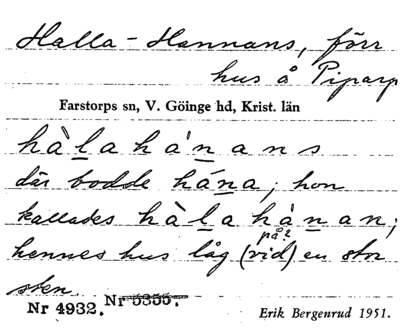 Halla-Hannans, förr
hus å Piparp
Farstorps sn, V. Göinge hd, Krist. län
hàlahánans
där bodde hána; hon
kallades hàlahánan;
på?
hennes hus låg (vid) en stor
sten.
Nr 4932. Nr 5355.
Erik Bergenrud 1951.